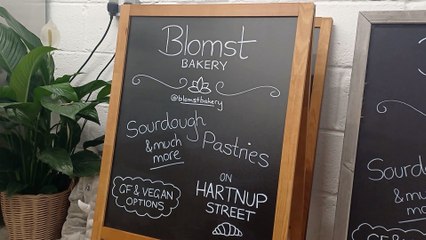 Blomst
BAKERY
@blomstbakery
Sourdough
& much
more
Pastries
GF & VEGAN
OPTIONS
ON
HARTNUP
STREET
Sourd
& mu
mor
GF & V